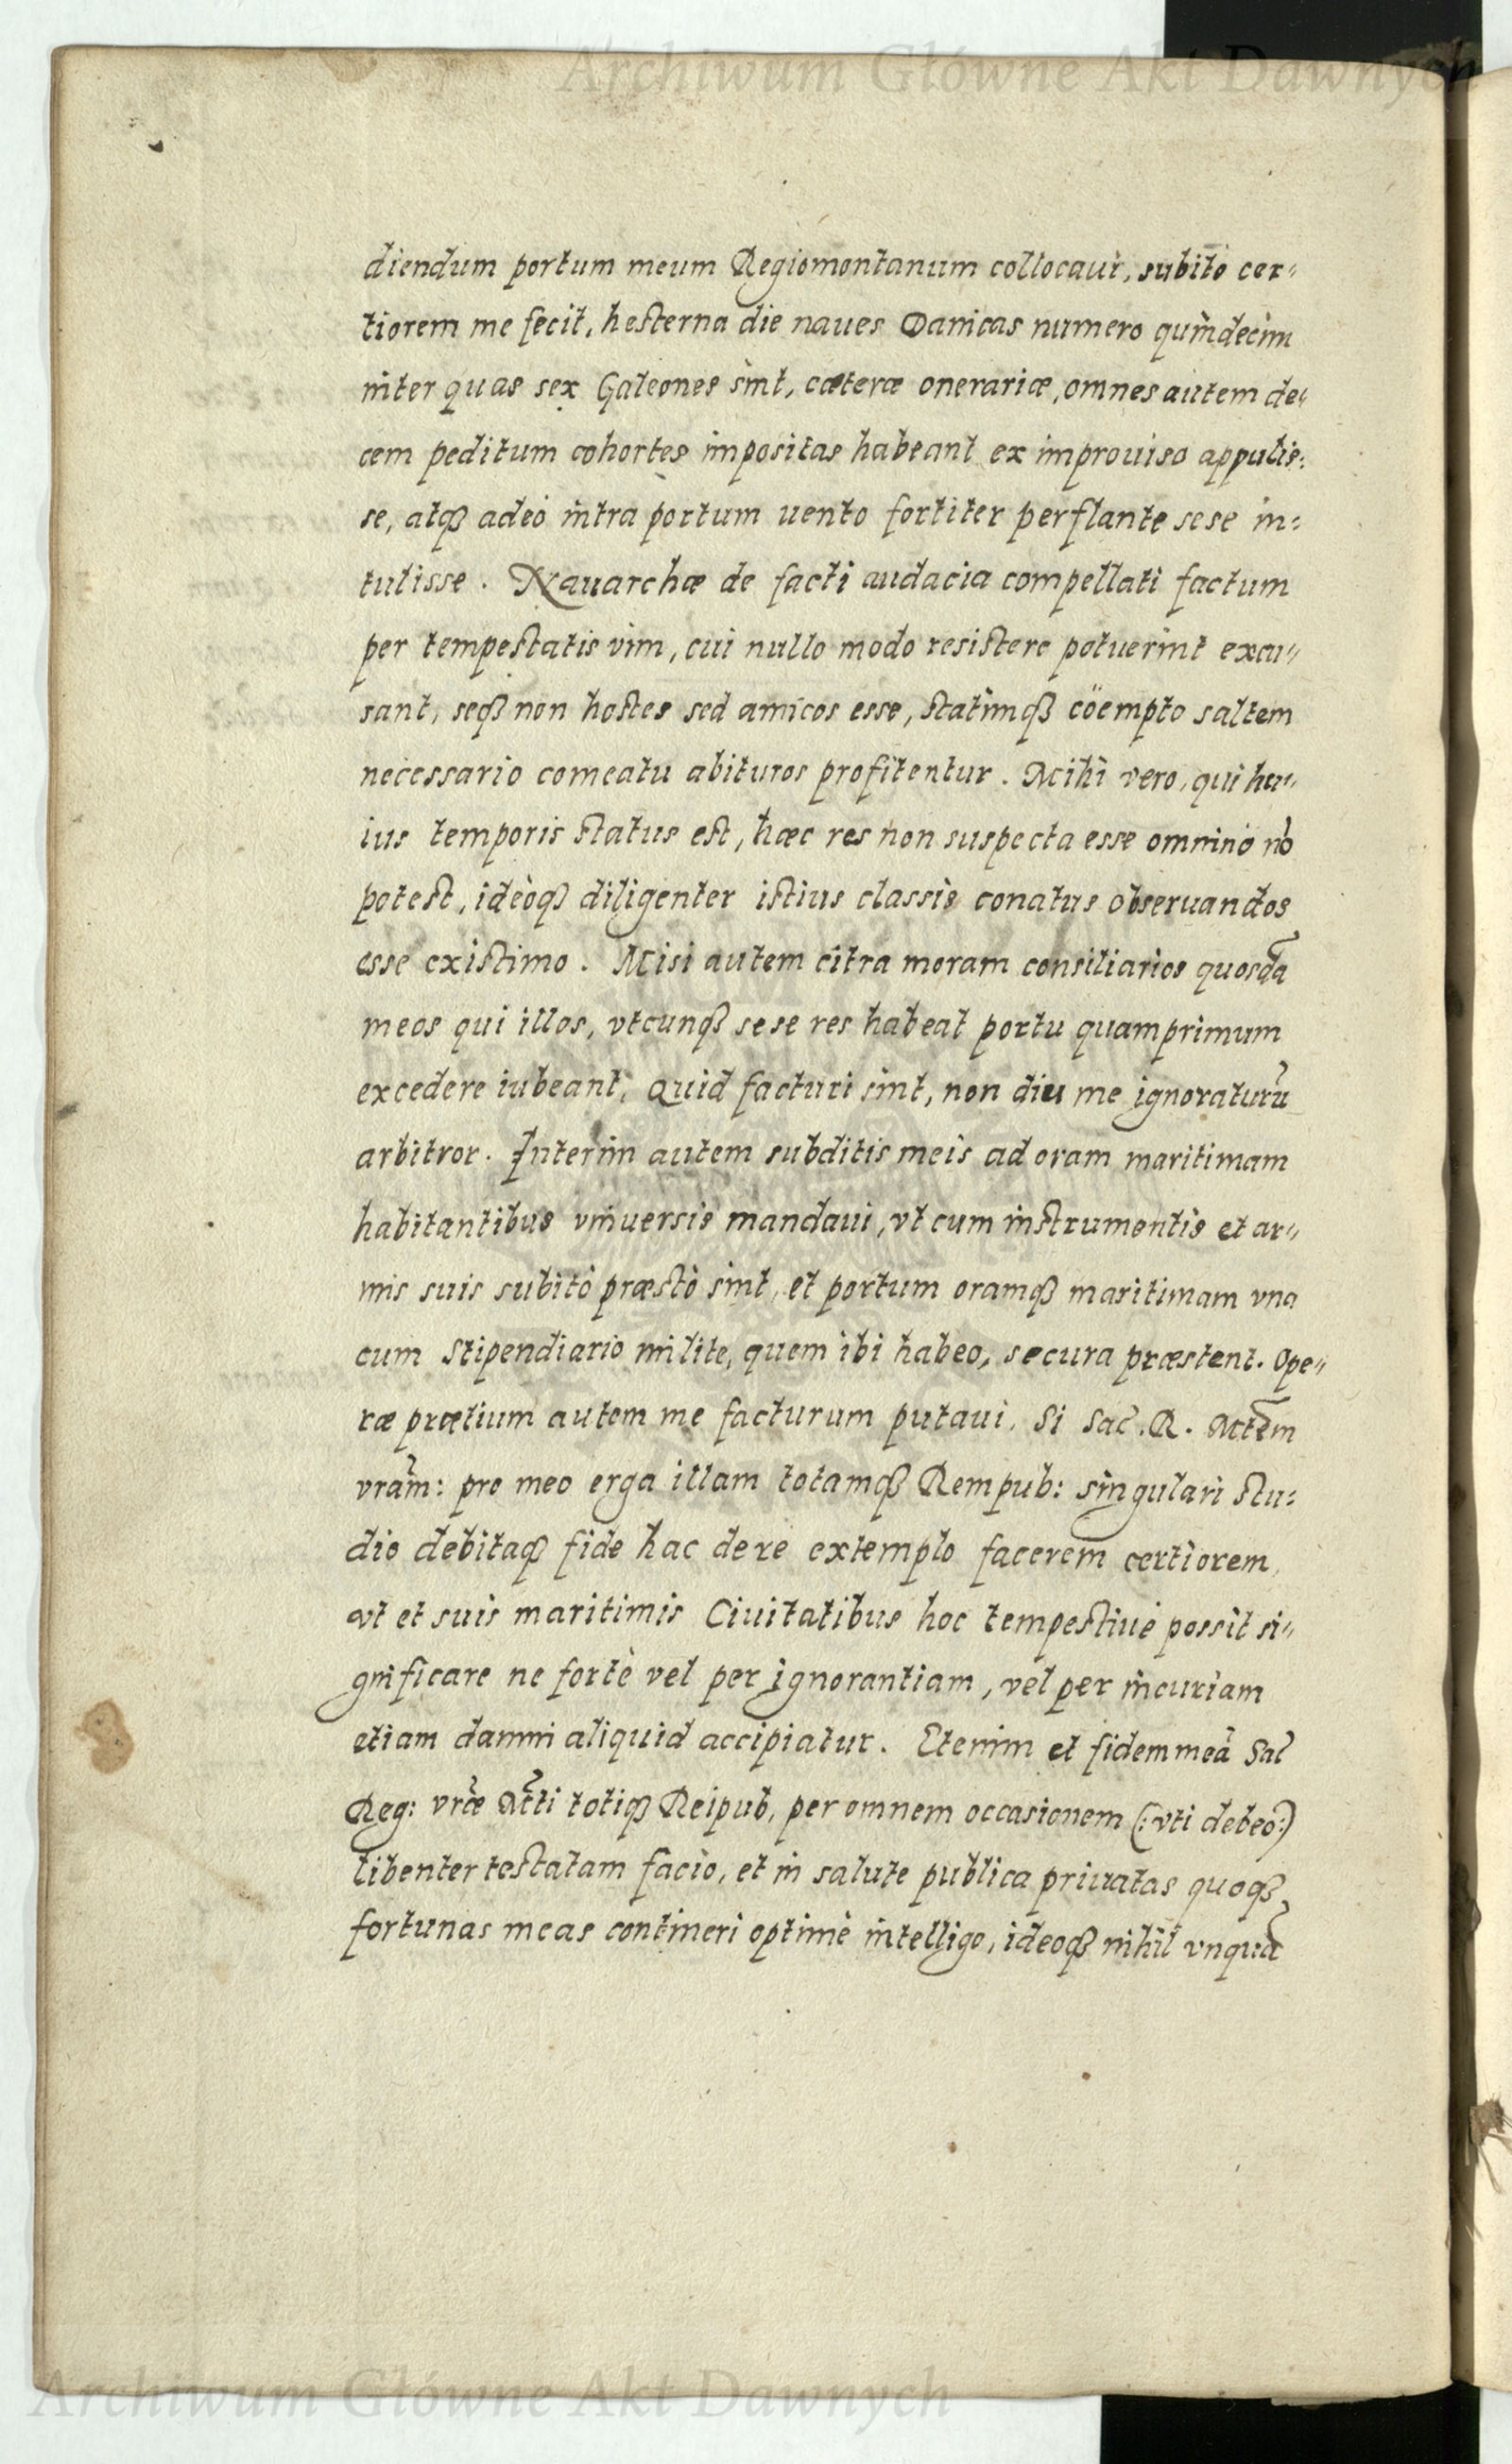 Archiwum Główne Akt Dawnych
diendum portum meum Regiomontanum collocaui, subitò cer=
tiorem me fecit, hesterna die naues Danicas numero quindecim
inter quas sex Galeones sint, cæteræ onerariæ, omnes autem de=
cem peditum cohortes impositas habeant ex improuiso appulis=
se, atq₃ adeò intra portum uento fortiter perflante sese in=
tulisse. Nauarchæ de facti audacia compellati factum
per tempestatis vim, cui nullo modo resistere potuerint excu=
sant, seq₃ non hostes sed amicos esse, statimq₃ cöempto saltem
necessario comeatu abituros profitentur. Mihi vero, qui hu=
ius temporis status est, hæc res non suspecta esse omnino nō
potest, ideòq₃ diligenter istius classis conatus obseruandos
esse existimo. Misi autem citra moram consiliarios quosdā
meos qui illos, vtcunq₃ sese res habeat portu quamprimum
excedere iubeant, Quid facturi sint, non diu me ignoraturū
arbitror. Interim autem subditis meis ad oram maritimam
habitantibus vniuersis mandaui, vt cum instrumentis et ar=
mis suis subitò præstò sint, et portum oramq₃ maritimam vna
cum stipendiario milite, quem ibi habeo, secura præstent. Ope=
ræ prætium autem me facturum putaui, Si Sac̃. R. Mtẽm
vrãm: pro meo erga illam totamq₃ Rempub: singulari stu=
dio debitaq₃ fide hac de re extemplo facerem certiorem,
vt et suis maritimis Ciuitatibus hoc tempestiuè possit si=
gnificare ne fortè vel per ignorantiam, vel per incuriam
etiam damni aliquid accipiatur. Etenim et fidem meā Sac̃
Reg: vræ̃ Mt̃ti totiq₃ Reipub, per omnem occasionem (: vti debeo :)
libenter testatam facio, et in salute publica priuatas quoq₃
fortunas meas contineri optimè intelligo, ideoq₃ nihil vnquā
Archiwum Główne Akt Dawnych